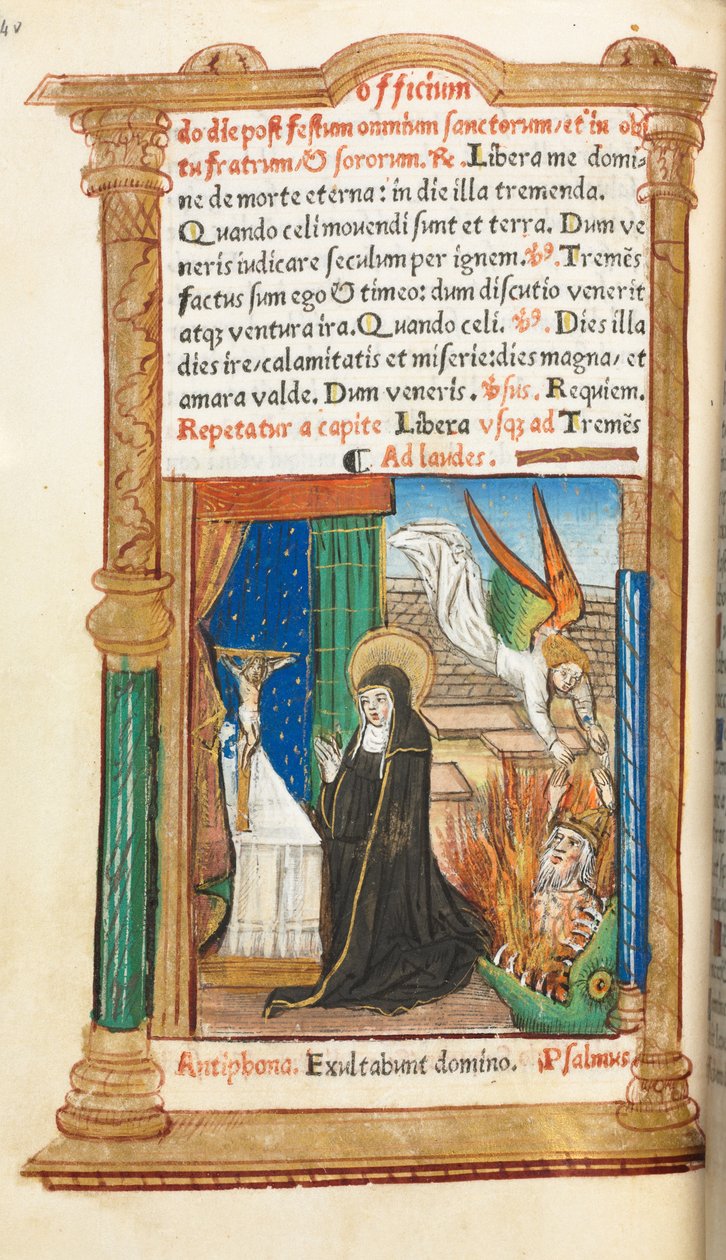 4v
officium
do die post festum omnium sanctorum/et in obi
tu fratrum/& sororum. ℟. Libera me domi⸗
ne de morte eterna: in die illa tremenda.
Quando celi movendi sunt et terra. Dum ve
neris iudicare seculum per ignem. ℣. Tremēs
factus sum ego & timeo: dum discutio venerit
atqꝫ ventura ira. Quando celi. ℣. Dies illa
dies ire/calamitatis et miserie:dies magna/ et
amara valde. Dum veneris. ℣sus. Requiem.
Repetatur a capite Libera vsqꝫ ad Tremēs
¶ Ad laudes.
Antiphona. Exultabunt domino. Psalmus